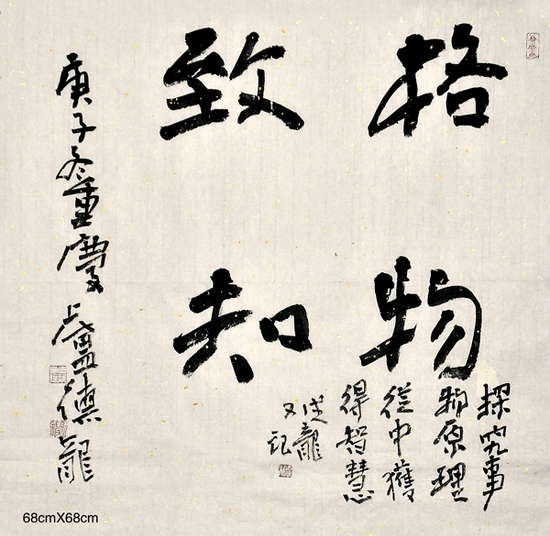 格物
致知
探究事
物原理
從中獲
得智慧
龍
又記
庚子冬重慶盧德龍
68cmX68cm